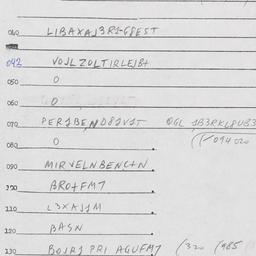 040 LIBAXAJ3R1G8EST
042 VOJLZOLTIRLEJB+
050 0
060 0
070 PER1BE,ND81V1T QGL 1B3RKLPUB3
080 0 094020
090 MIRVELNBENC+N
100 BRO+FM7
110 L3XAJ1M
120 BASN
130 BOJAJ PRI AGUFM7 (320 (985